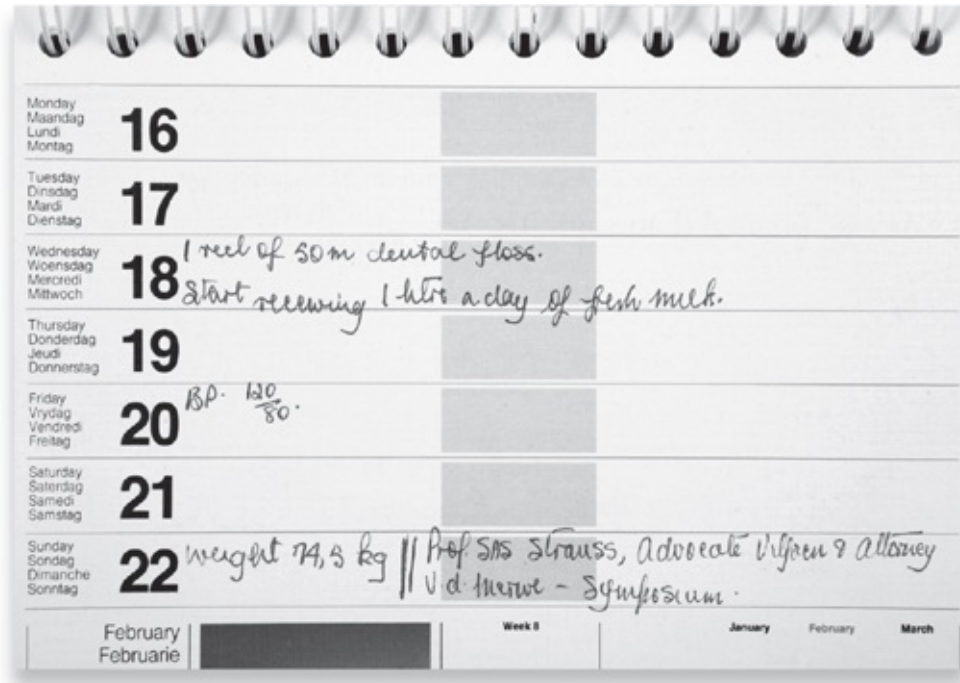 Monday
Maandag
Lundi
Montag
16
Tuesday
Dinsdag
Mardi
Dienstag
17
Wednesday
Woensdag
Mercredi
Mittwoch
18
1 reel of 50m dental floss.
Start receiving 1 litre a day of fresh milk.
Thursday
Donderdag
Jeudi
Donnerstag
19
Friday
Vrydag
Vendredi
Freitag
20
BP. 120/80.
Saturday
Saterdag
Samedi
Samstag
21
Sunday
Sondag
Dimanche
Sonntag
22
weight 74,5 kg || Prof. SAS Strauss, Advocate & Attorney
v.d. Merwe - Symposium.
February
Februarie
Week 8
January February March